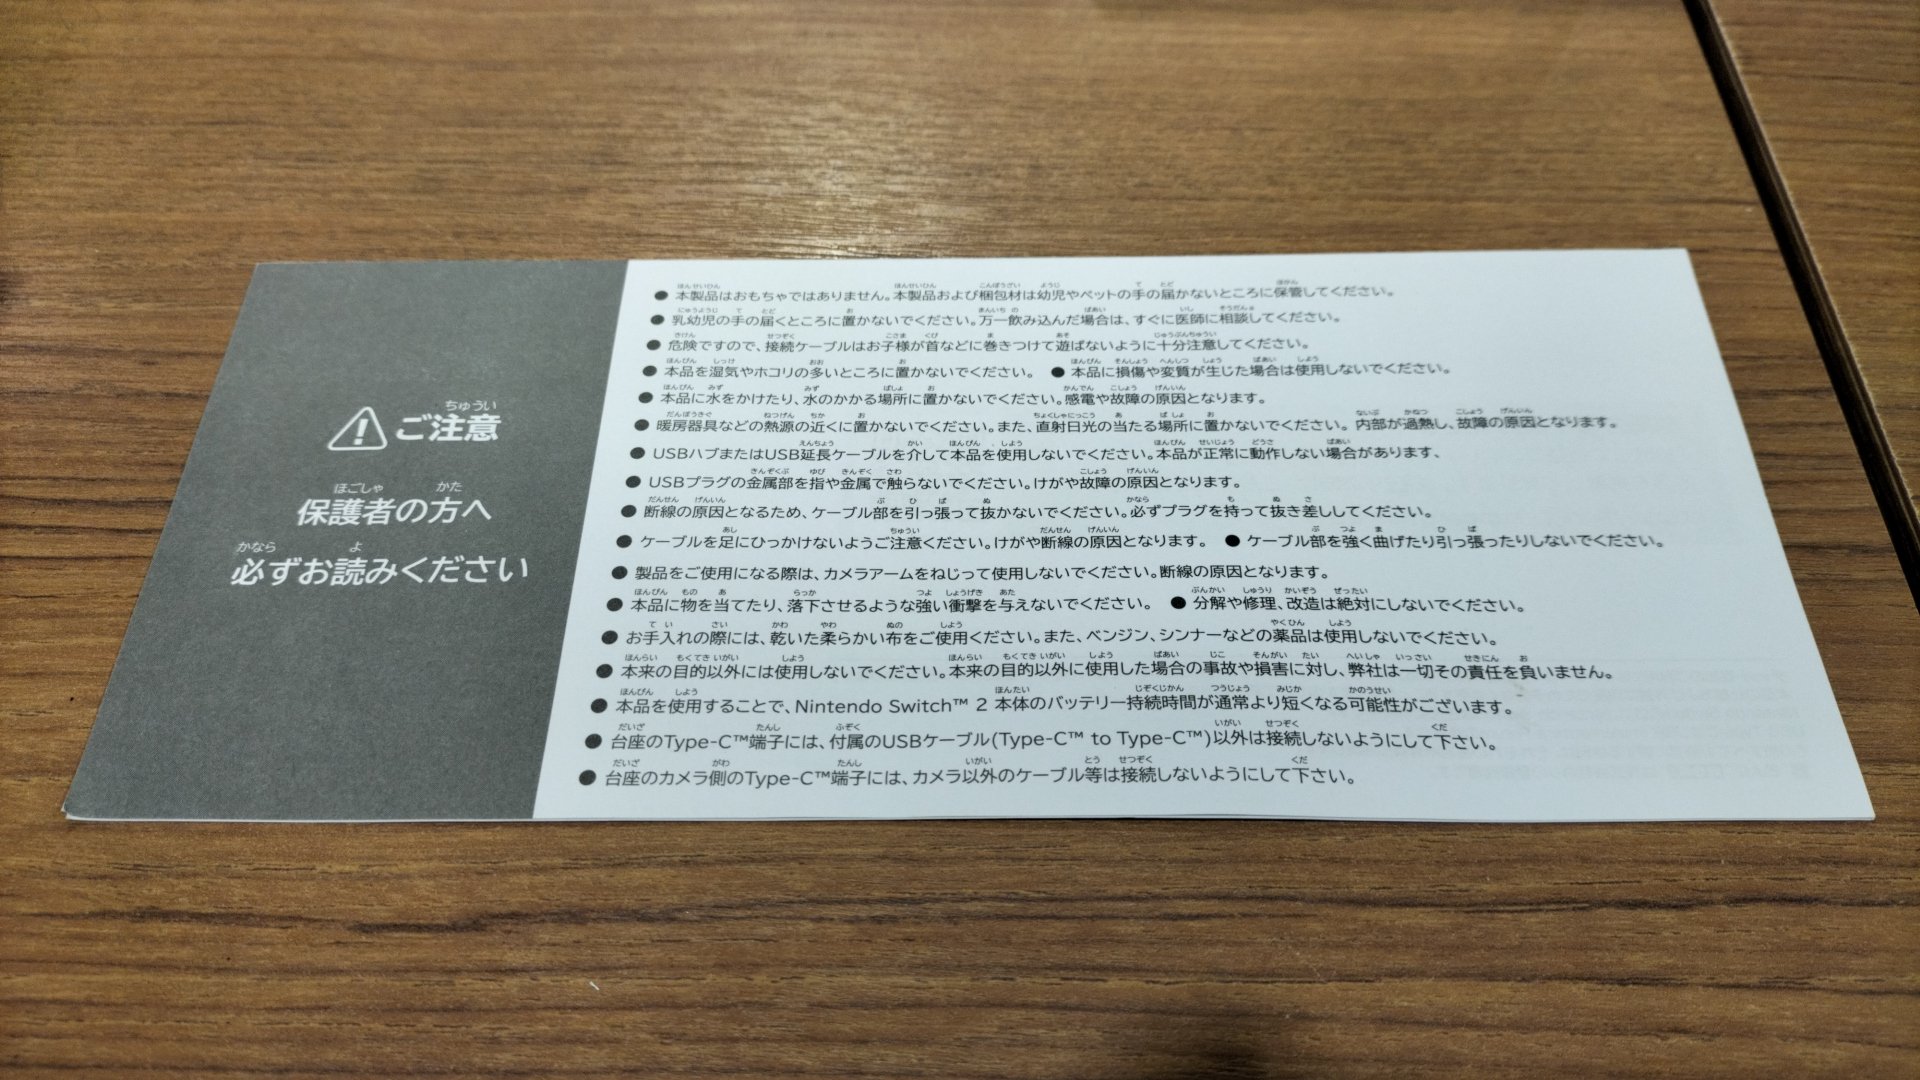 ご注意
保護者の方へ
必ずお読みください
● 本製品はおもちゃではありません。本製品および梱包材は幼児やペットの手の届かないところに保管してください。
● 乳幼児の手の届くところに置かないでください。万一飲み込んだ場合は、すぐに医師に相談してください。
● 危険ですので、接続ケーブルはお子様が首などに巻きつけて遊ばないように十分注意してください。
● 本品を湿気やホコリの多いところに置かないでください。 ● 本品に損傷や変質が生じた場合は使用しないでください。
● 本品に水をかけたり、水のかかる場所に置かないでください。感電や故障の原因となります。
● 暖房器具などの熱源の近くに置かないでください。また、直射日光の当たる場所に置かないでください。内部が過熱し、故障の原因となります。
● USBハブまたはUSB延長ケーブルを介して本品を使用しないでください。本品が正常に動作しない場合があります、
● USBプラグの金属部を指や金属で触らないでください。けがや故障の原因となります。
● 断線の原因となるため、ケーブル部を引っ張って抜かないでください。必ずプラグを持って抜き差ししてください。
● ケーブルを足にひっかけないようご注意ください。けがや断線の原因となります。 ● ケーブル部を強く曲げたり引っ張ったりしないでください。
● 製品をご使用になる際は、カメラアームをねじって使用しないでください。断線の原因となります。
● 本品に物を当てたり、落下させるような強い衝撃を与えないでください。 ● 分解や修理、改造は絶対にしないでください。
● お手入れの際には、乾いた柔らかい布をご使用ください。また、ベンジン、シンナーなどの薬品は使用しないでください。
● 本来の目的以外には使用しないでください。本来の目的以外に使用した場合の事故や損害に対し、弊社は一切その責任を負いません。
● 本品を使用することで、Nintendo Switch™ 2 本体のバッテリー持続時間が通常より短くなる可能性がございます。
● 台座のType-C™端子には、付属のUSBケーブル(Type-C™ to Type-C™)以外は接続しないようにして下さい。
● 台座のカメラ側のType-C™端子には、カメラ以外のケーブル等は接続しないようにして下さい。